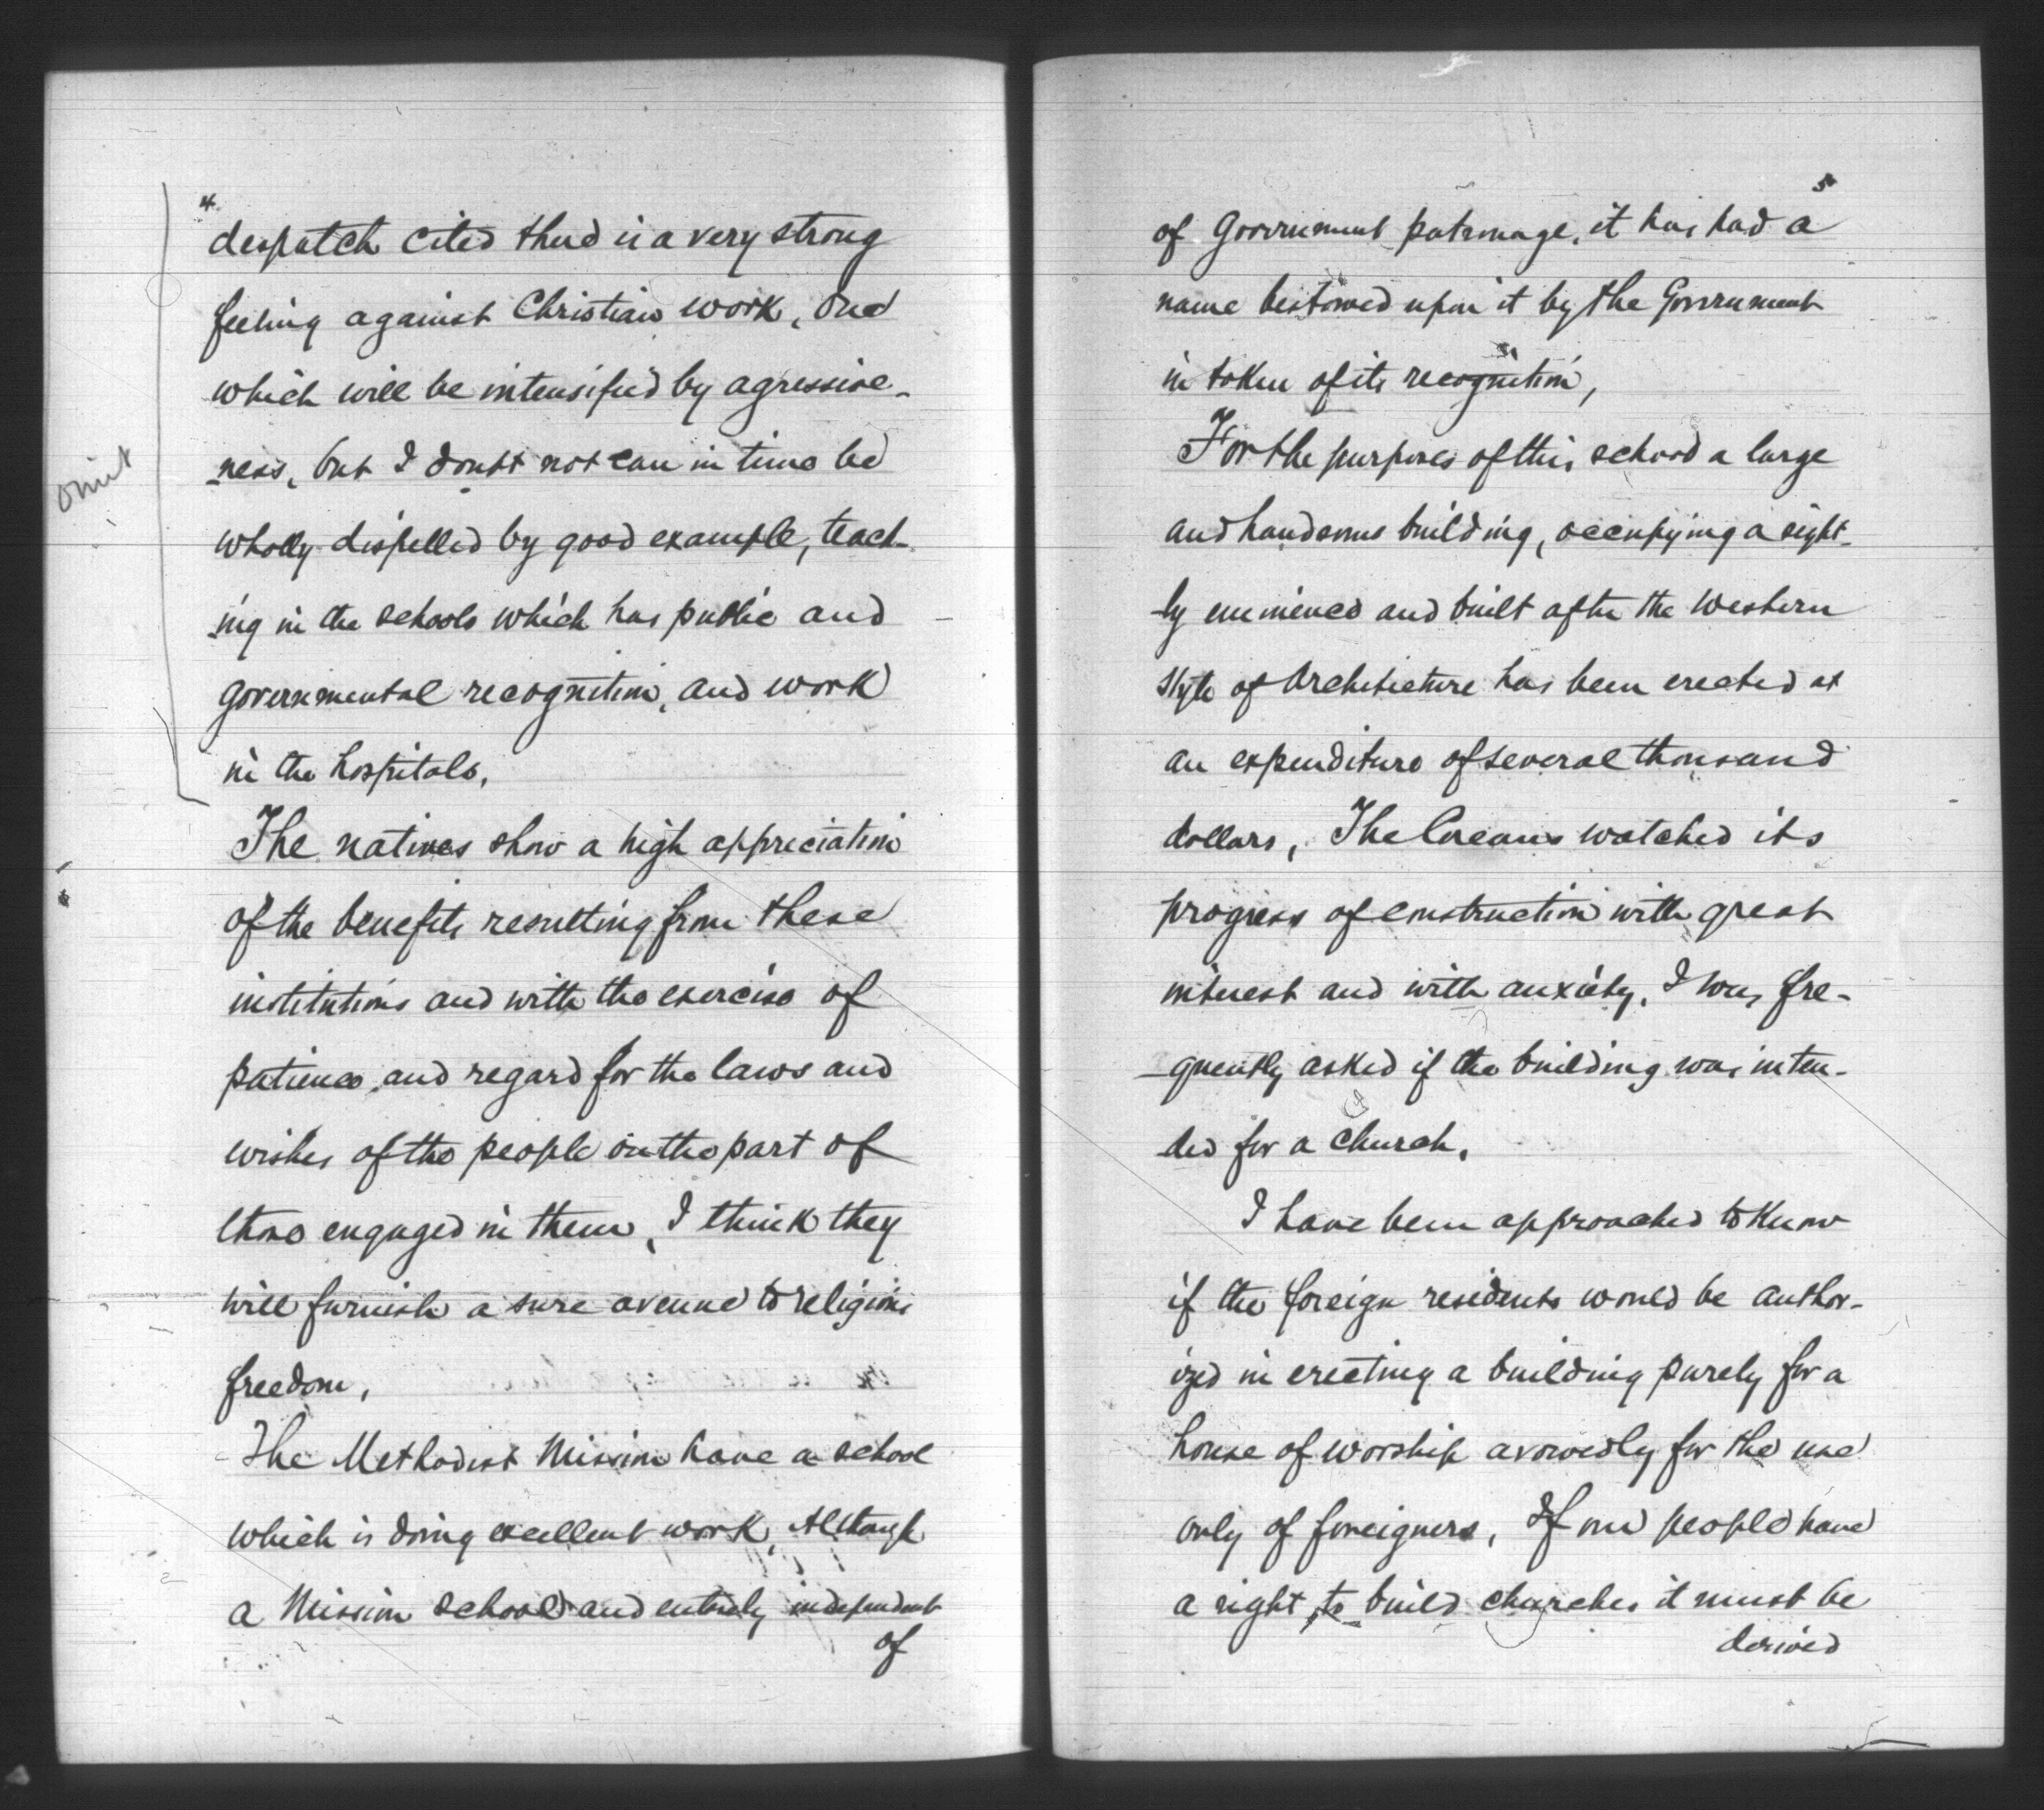 4.
despatch cited there is a very strong
feeling against Christian work, one
which will be intensified by agressive-
-ness, but I doubt not can in time be
wholly dispelled by good example, teach-
-ing in the schools which has public and
governmental recognition, and work
in the hospitals.
omit
The natives show a high appreciation
of the benefits resulting from these
institutions and with the exercise of
patience and regard for the laws and
wishes of the people on the part of
those engaged in them, I think they
will furnish a sure avenue to religious
freedom,
The Methodist Mission have a school
which is doing excellent work, Although
a Mission school and entirely independent
of
5
of Government patronage, it has had a
name bestowed upon it by the Government
in token of its recognition,
For the purposes of this school a large
and handsome building, occupying a sight-
-ly eminence and built after the Western
style of Architecture has been erected at
an expenditure of several thousand
dollars, The Coreans watched its
progress of construction with great
interest and with anxiety, I was fre-
-quently asked if the building was inten-
-ded for a church,
I have been approached to know
if the foreign residents would be author-
ized in erecting a building purely for a
house of worship avowedly for the use
only of foreigners, If our people have
a right to build churches it must be
derived